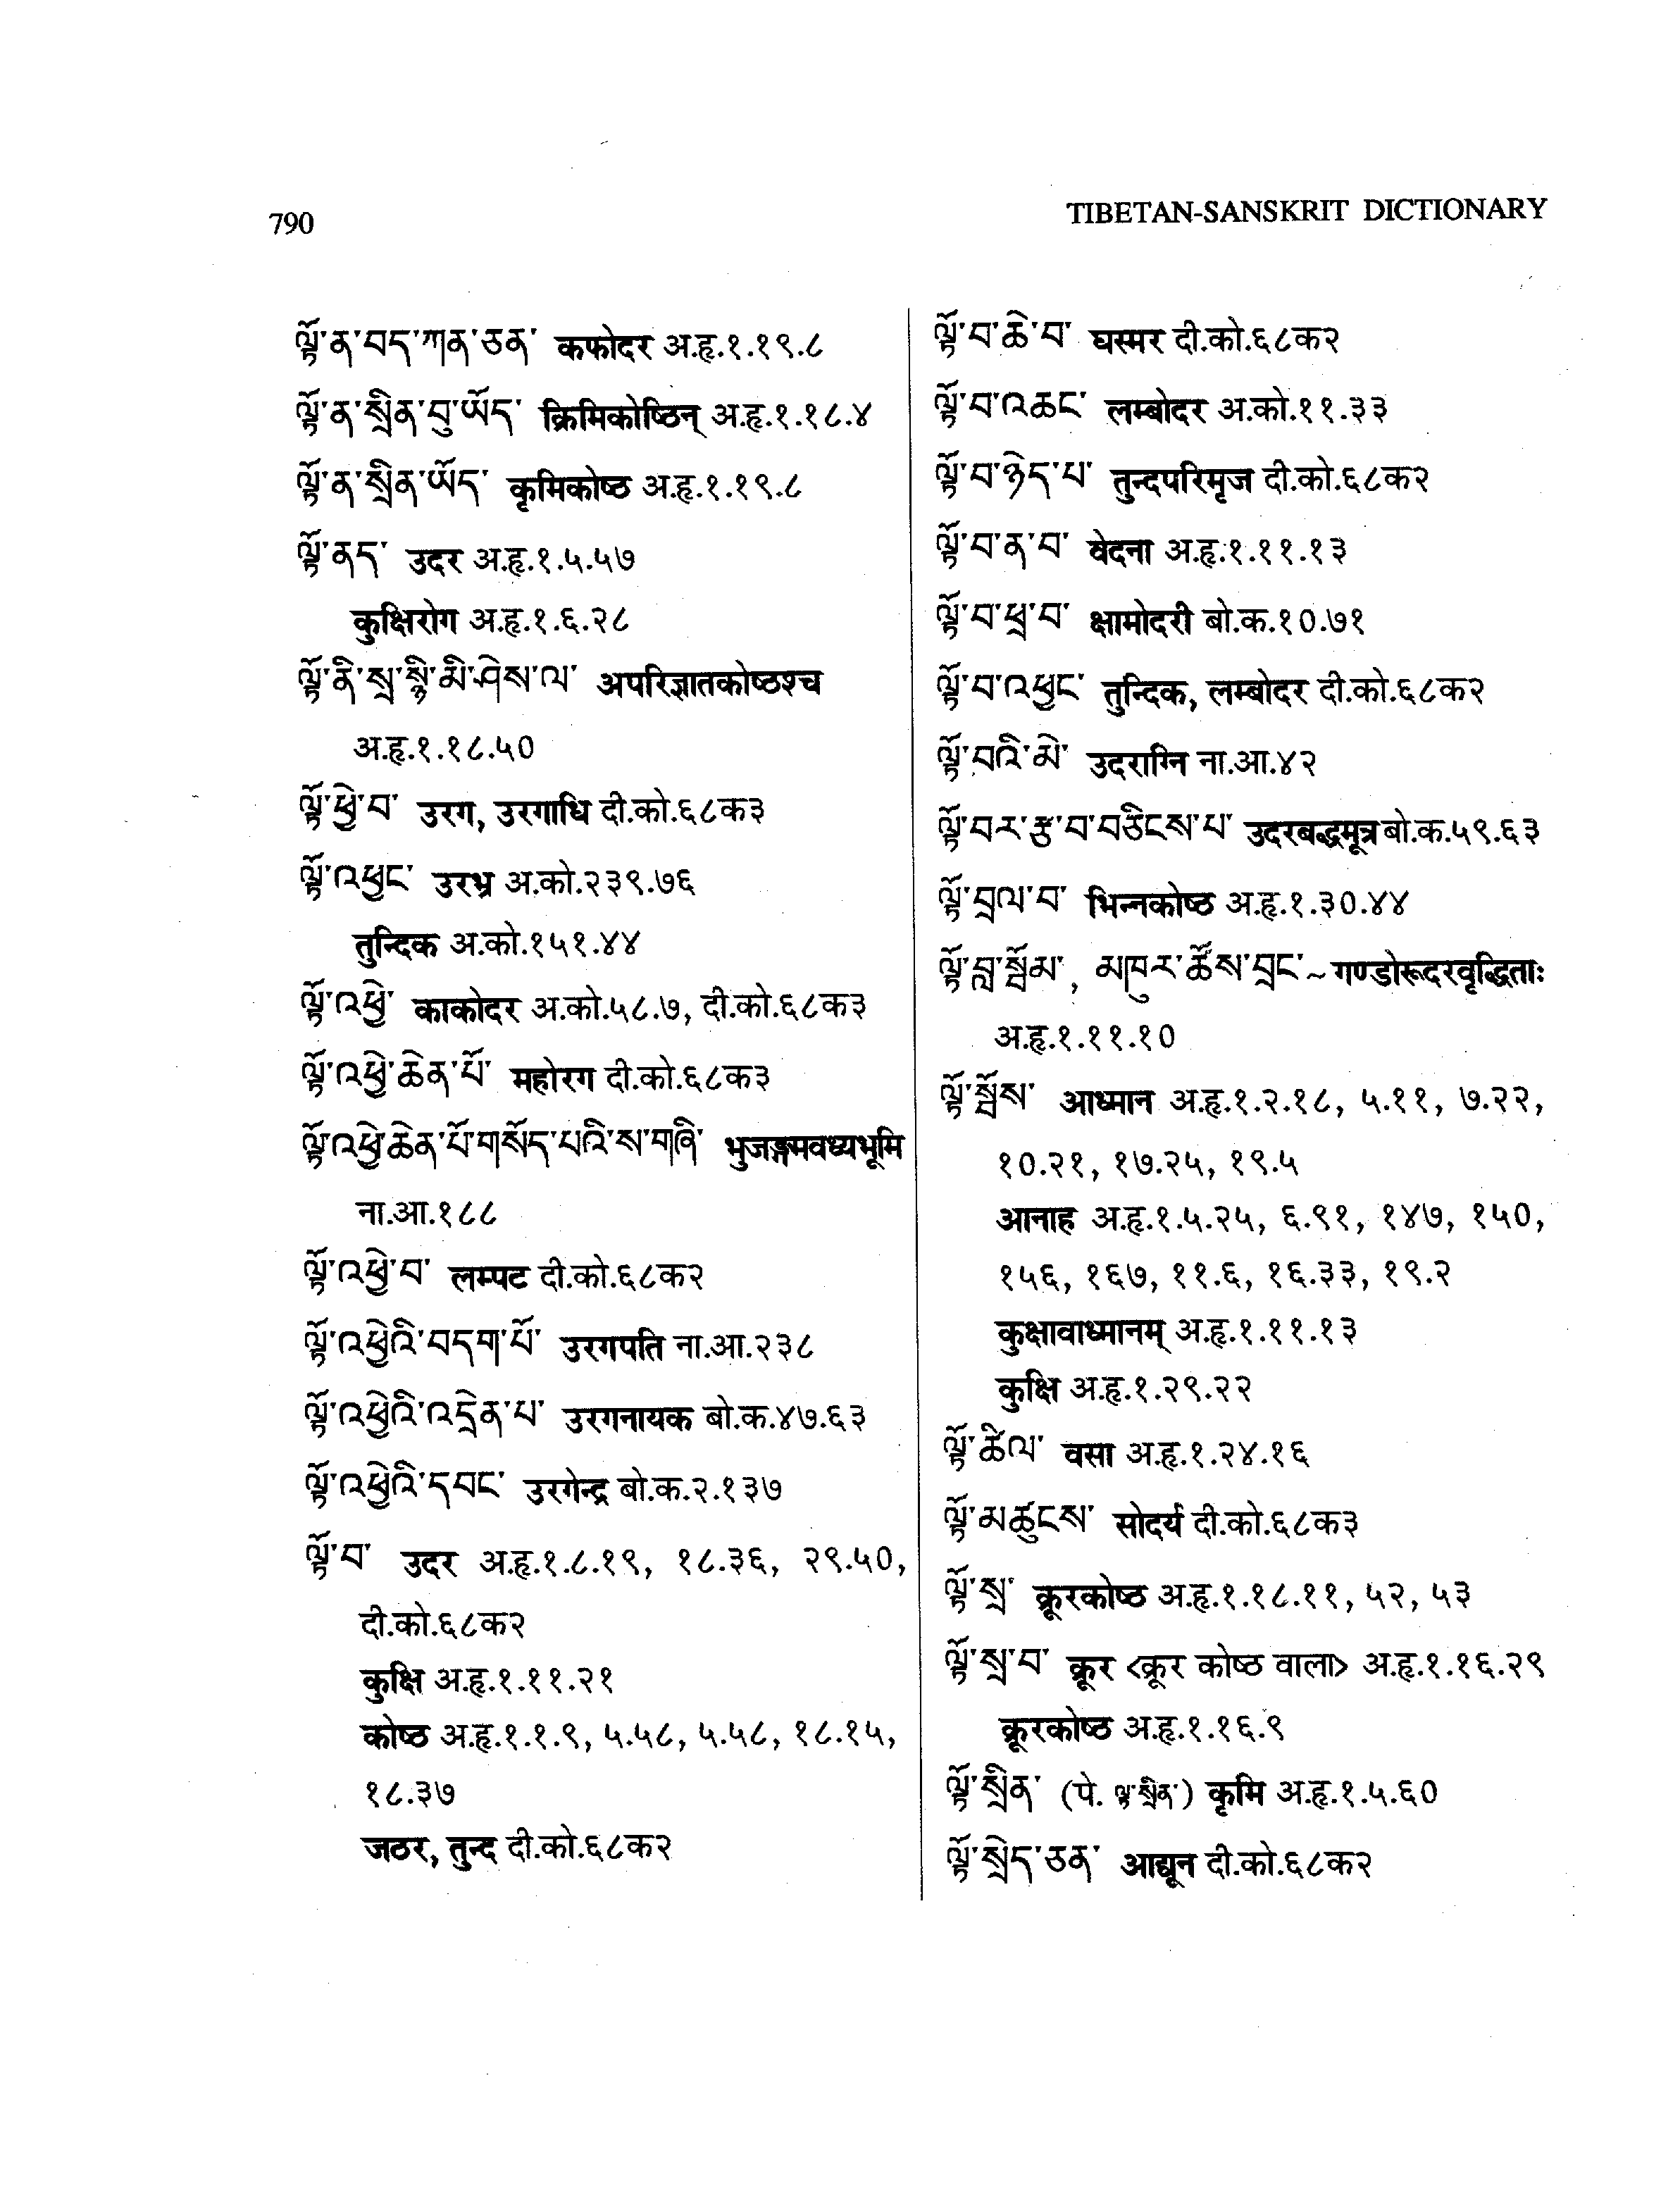 790
TIBETAN-SANSKRIT DICTIONARY
ལྟོ་ན་བད་ཀན་ཅན་ कफोदर अ.हृ.१.१९.८
ལྟོ་ན་སྲིན་བུ་ཡོད་ क्रिमिकोष्ठिन् अ.हृ.१.१८.४
ལྟོ་ན་སྲིན་ཡོད་ कृमिकोष्ठ अ.हृ.१.१९.८
ལྟོ་ནད་ उदर अ.हृ.१.५.५७
कुक्षिरोग अ.हृ.१.६.२८
ལྟོ་ནི་སྲ་སྙི་མི་ཤེས་ལ་ अपरिज्ञातकोष्ठश्च
अ.हृ.१.१८.५0
ལྟོ་ཕྱེ་བ་ उरग, उरगाधि दी.को.६८क३
ལྟོ་འཕྱང་ उरभ्र अ.को.२३९.७६
तुन्दिक अ.को.१५१.४४
ལྟོ་འཕྱེ་ काकोदर अ.को.५८.७, दी.को.६८क३
ལྟོ་འཕྱེ་ཆེན་པོ་ महोरग दी.को.६८क३
ལྟོ་འཕྱེ་ཆེན་པོ་གསོད་པའི་ས་གཞི་ भुजङ्गमवध्यभूमि
ना.आ.१८८
ལྟོ་འཕྱེ་བ་ लम्पट दी.को.६८क२
ལྟོ་འཕྱེའི་བདག་པོ་ उरगपति ना.आ.२३८
ལྟོ་འཕྱེའི་འདྲེན་པ་ उरगनायक बो.क.४७.६३
ལྟོ་འཕྱེའི་དབང་ उरगेन्द्र बो.क.२.१३७
ལྟོ་བ་ उदर अ.हृ.१.८.१९, १८.३६, २९.५0,
दी.को.६८क२
कुक्षि अ.हृ.१.११.२१
कोष्ठ अ.हृ.१.१.९, ५.५८, ५.५८, १८.१५,
१८.३७
जठर, तुन्द दी.को.६८क२
ལྟོ་བ་ཆེ་བ་ घस्मर दी.को.६८क२
ལྟོ་བ་འཆང་ लम्बोदर अ.को.११.३३
ལྟོ་བ་ཉེད་པ་ तुन्दपरिमृज दी.को.६८क२
ལྟོ་བ་ན་བ་ वेदना अ.हृ.१.११.१३
ལྟོ་བ་ཕྲ་བ་ क्षामोदरी बो.क.१0.७१
ལྟོ་བ་འཕྱང་ तुन्दिक, लम्बोदर दी.को.६८क२
ལྟོ་བའི་མེ་ उदराग्नि ना.आ.४२
ལྟོ་བར་རྩ་བ་བཅིངས་པ་ उदरबद्धमूत्र बो.क.५९.६३
ལྟོ་བྲལ་བ་ भिन्नकोष्ठ अ.हृ.१.३0.४४
ལྟོ་བླ་སྦོམ་, མཁུར་ཚོས་བྲང་~ गण्डोरूदरवृद्धिताः
अ.हृ.१.११.१0
ལྟོ་སྦོས་ आध्मान अ.हृ.१.२.१८, ५.११, ७.२२,
१0.२१, १७.२५, १९.५
आनाह अ.हृ.१.५.२५, ६.९१, १४७, १५0,
१५६, १६७, ११.६, १६.३३, १९.२
कुक्षावाध्मानम् अ.हृ.१.११.१३
कुक्षि अ.हृ.१.२९.२२
ལྟོ་ཚིལ་ वसा अ.हृ.१.२४.१६
ལྟོ་མཚུངས་ सोदर्य दी.को.६८क३
ལྟོ་སྲ་ क्रूरकोष्ठ अ.हृ.१.१८.११, ५२, ५३
ལྟོ་སྲ་བ་ क्रूर <क्रूर कोष्ठ वाला> अ.हृ.१.१६.२९
क्रूरकोष्ठ अ.हृ.१.१६.९
ལྟོ་སྲིན་ (पे. ལྟ་སྲིན་) कृमि अ.हृ.१.५.६0
ལྟོ་སྲེད་ཅན་ आद्यून दी.को.६८क२